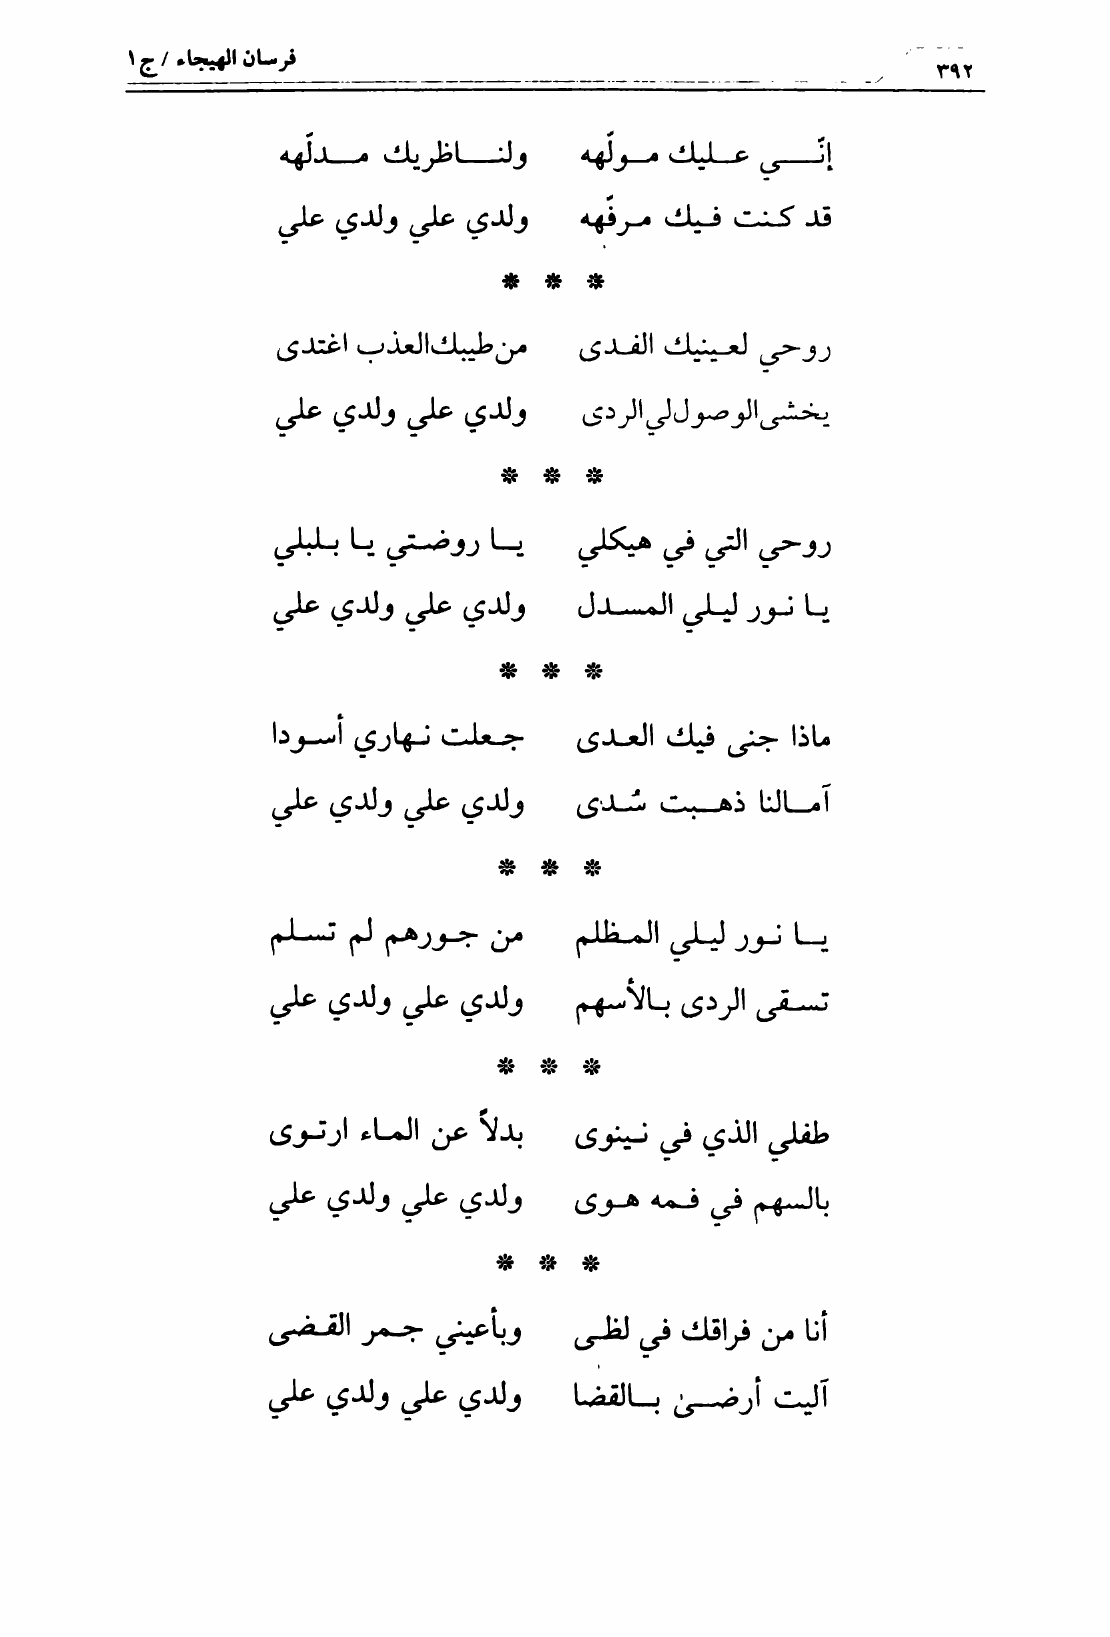 ٣٩٢ فرسان الهيجاء / ج ١
إنّي عليك مولّهه ولناظريك مدلّهه
قد كنت فيك مرفّهه ولدي علي ولدي علي
* * *
روحي لعينيك الفدى من طيبك العذب اغتدى
يخشى الوصول لي الردى ولدي علي ولدي علي
* * *
روحي التي في هيكلي يا روضتي يا بلبلي
يا نور ليلي المسدل ولدي علي ولدي علي
* * *
ماذا جنى فيك العدى جعلت نهاري أسودا
آمالنا ذهبت سُدى ولدي علي ولدي علي
* * *
يا نور ليلي المظلم من جورهم لم تسلم
تسقى الردى بالأسهم ولدي علي ولدي علي
* * *
طفلي الذي في نينوى بدلاً عن الماء ارتوى
بالسهم في فمه هوى ولدي علي ولدي علي
* * *
أنا من فراقك في لظى وبأعيني جمر القضى
آليت أرضىٰ بالقضا ولدي علي ولدي علي